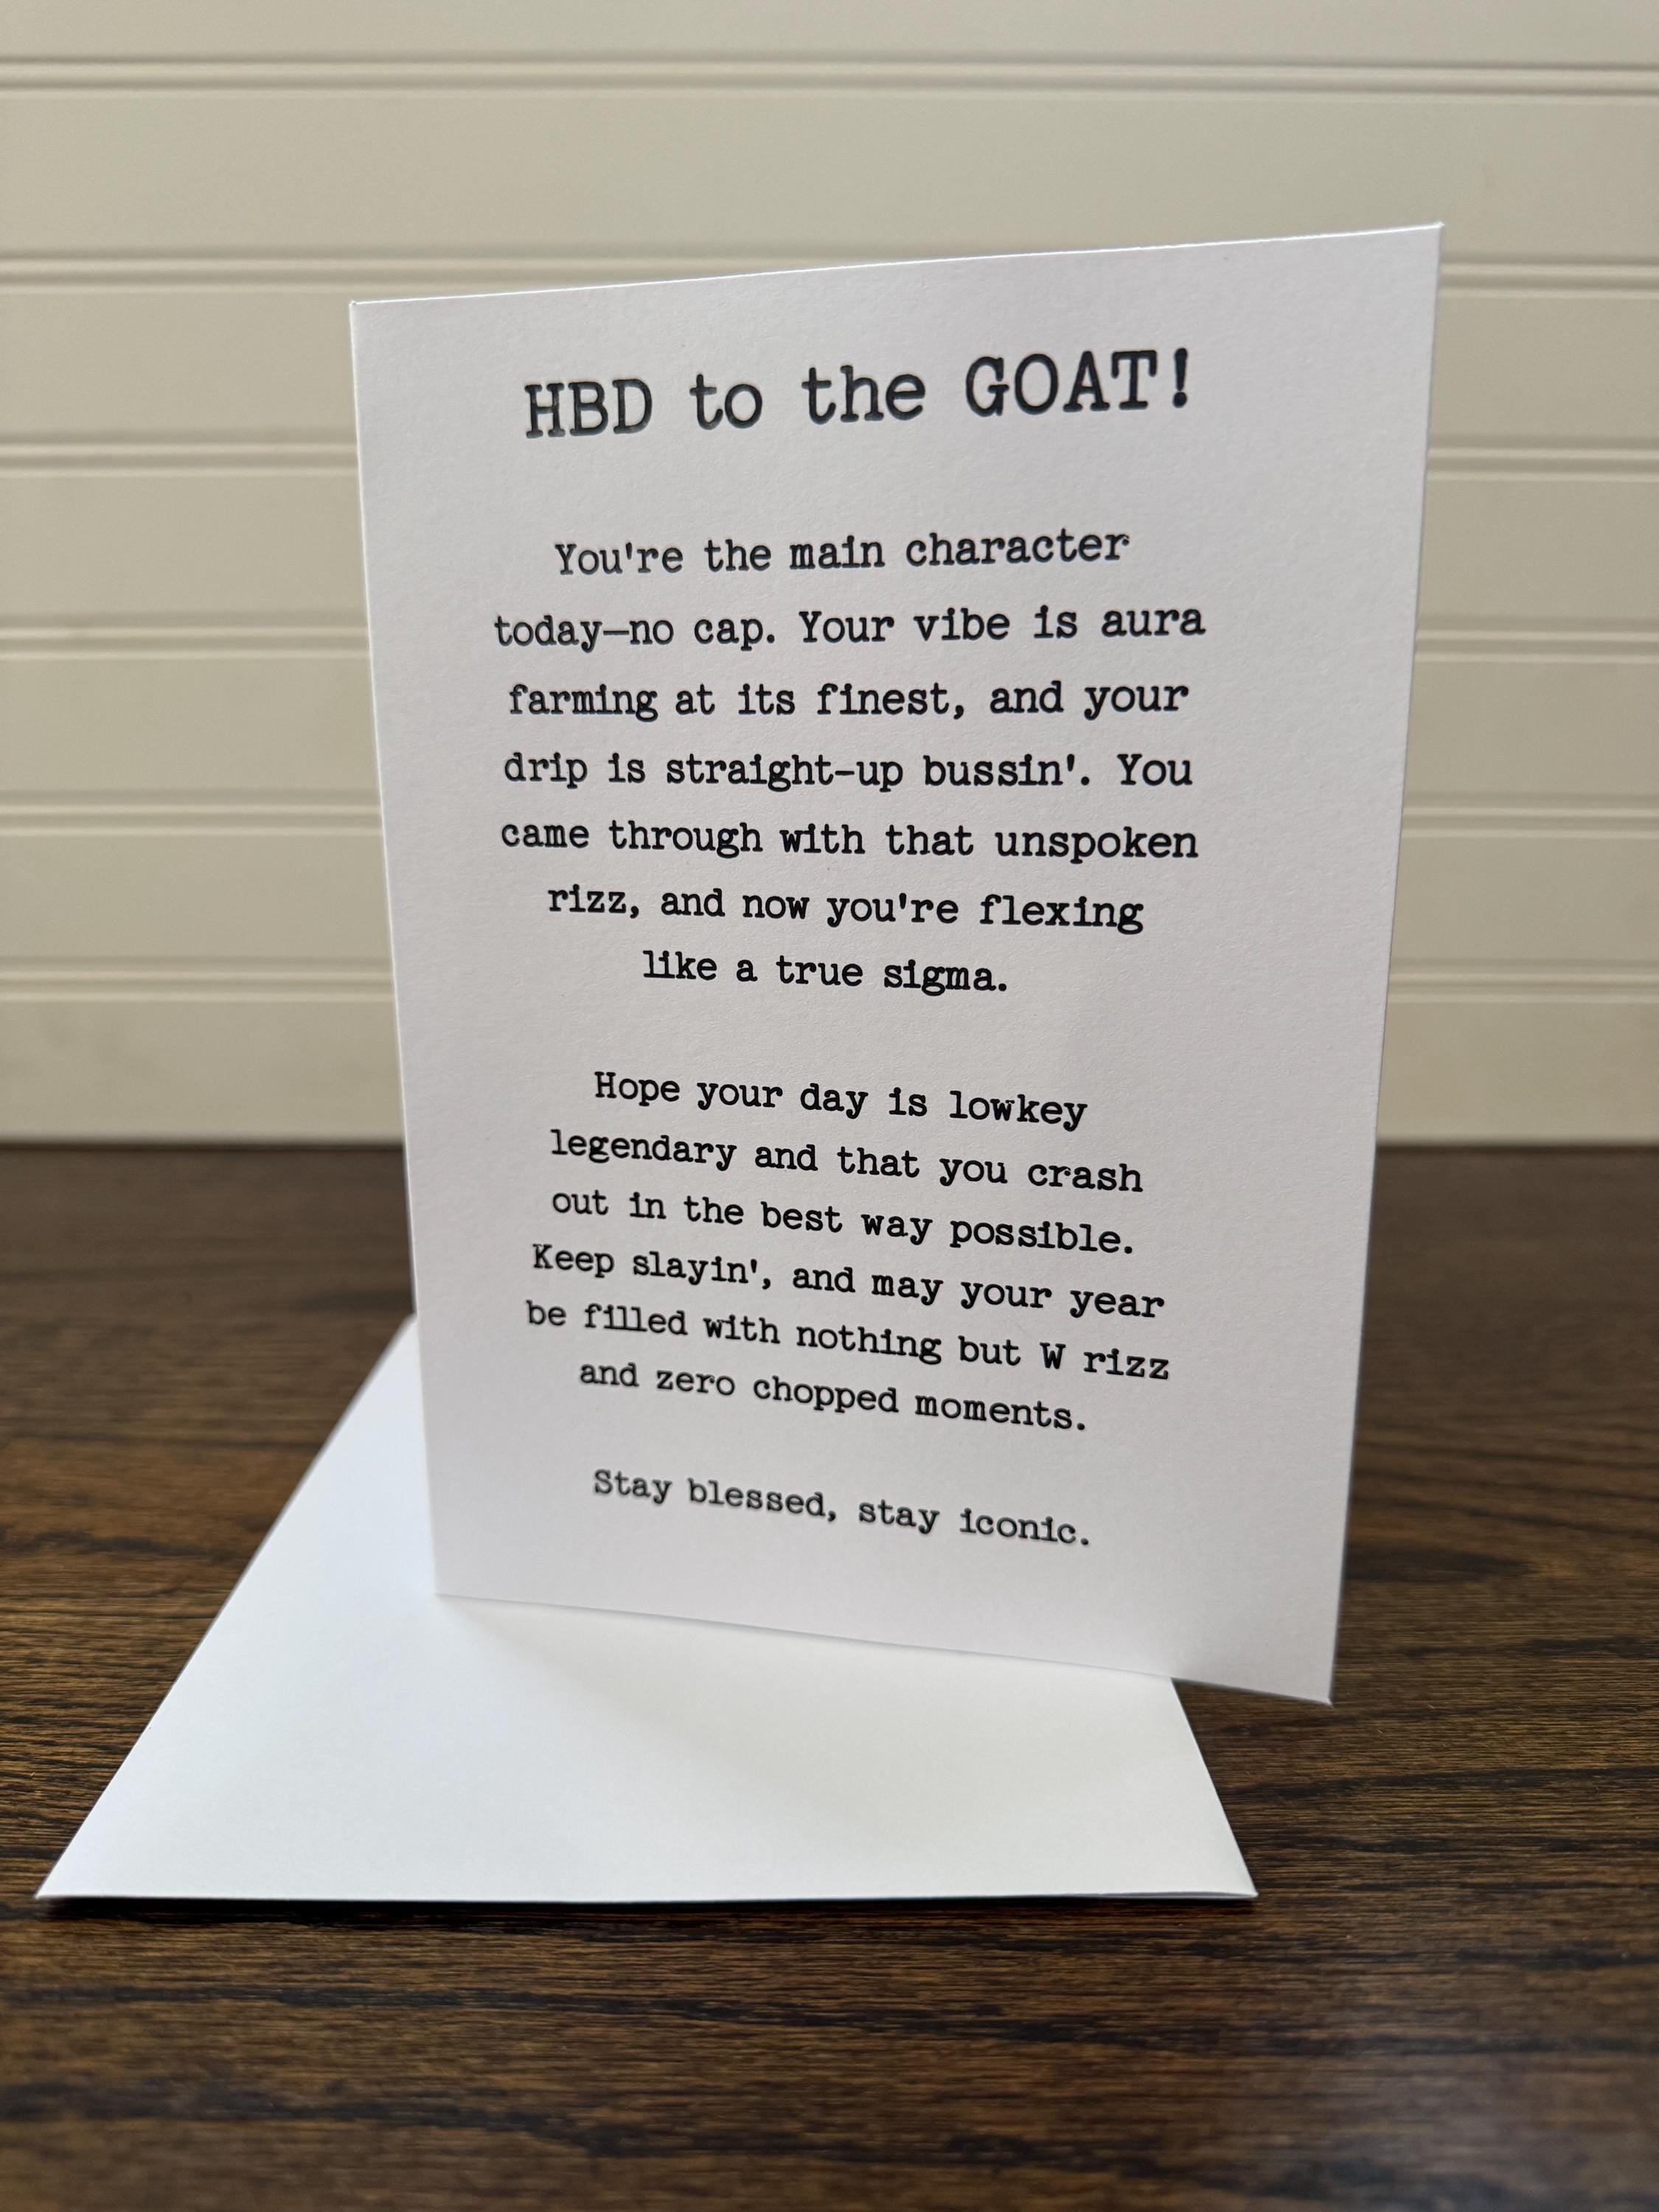 HBD to the GOAT!
You're the main character
today—no cap. Your vibe is aura
farming at its finest, and your
drip is straight-up bussin'. You
came through with that unspoken
rizz, and now you're flexing
like a true sigma.
Hope your day is lowkey
legendary and that you crash
out in the best way possible.
Keep slayin', and may your year
be filled with nothing but W rizz
and zero chopped moments.
Stay blessed, stay iconic.